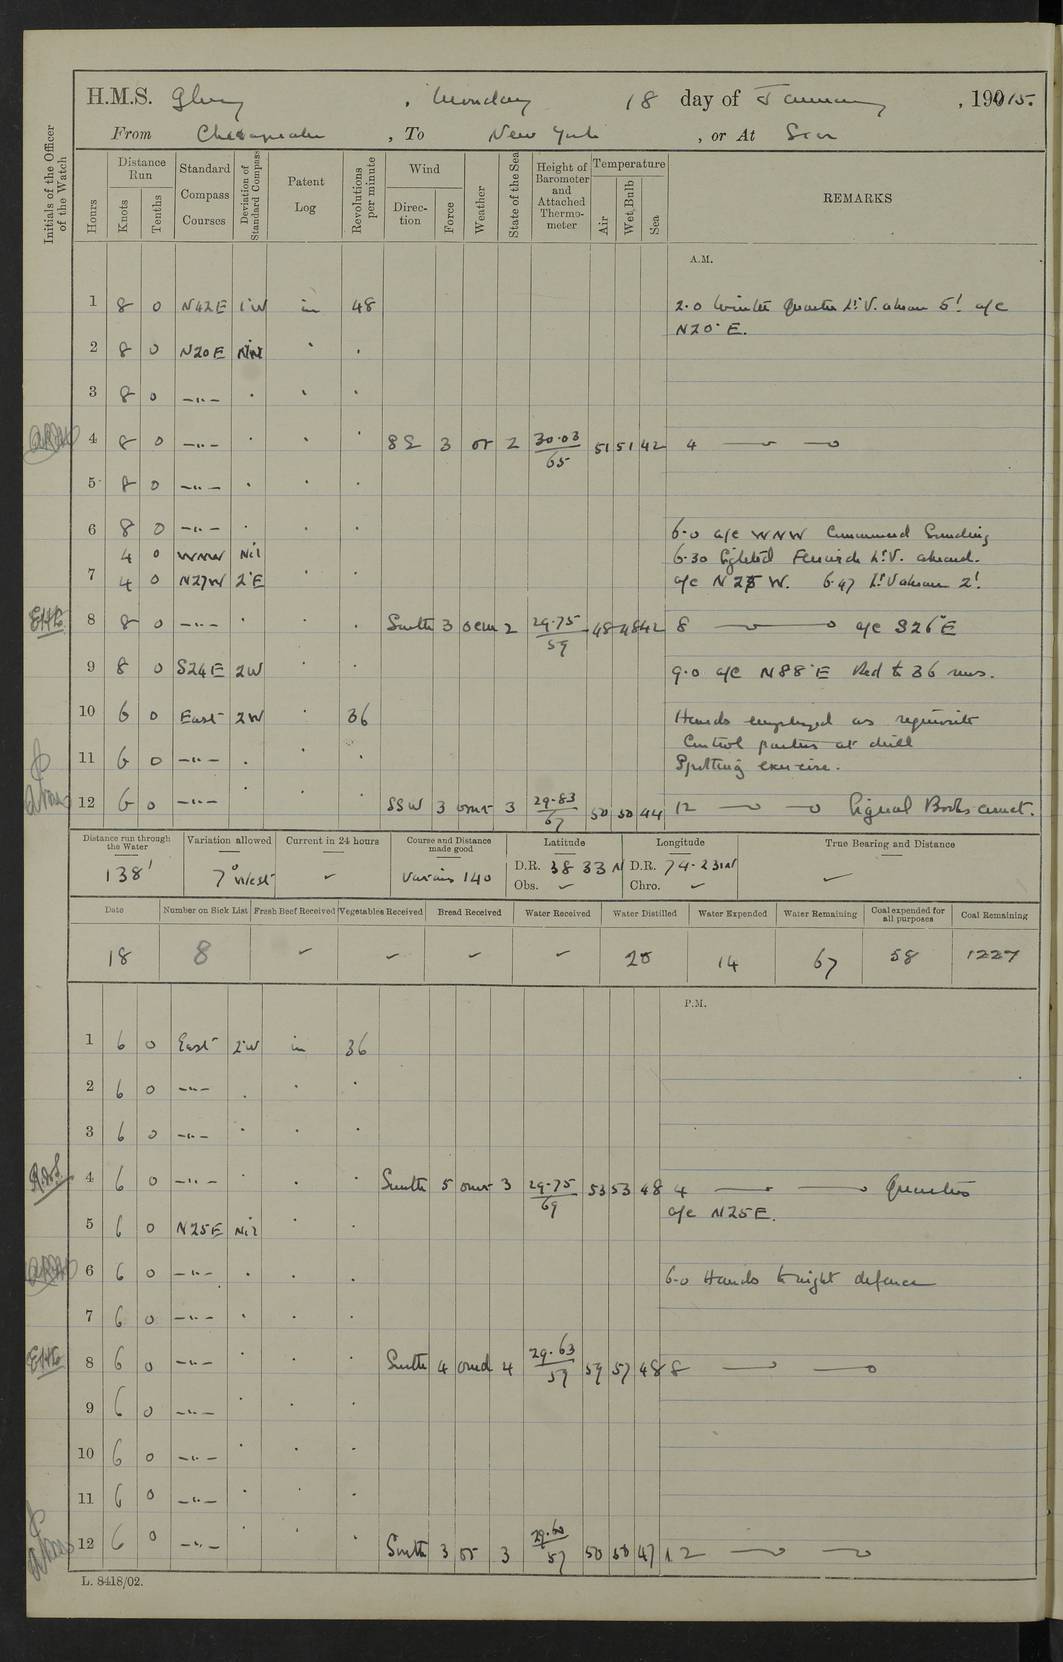 H.M.S. Glory, Monday 18 day of January, 1915.
From Chesapeake, To New York, or At Sea
Initials of the Officer of the Watch
Hours
Distance Run
Knots
Tenths
Standard Compass Courses
Deviation of Standard Compass
Patent Log
Revolutions per minute
Wind
Direction
Force
Weather
State of the Sea
Height of Barometer and Attached Thermometer
Temperature
Air
Wet Bulb
Sea
REMARKS
A.M.
1 8 0 N42E 1°W in 48 2.0 Winter Quarter Lt. V. abeam 5' a/c
N20°E.
2 8 0 N20E
3 8 0 —"—
4 8 0 —"— SE 3 or 2 30.03/65 51 51 42 4
5 8 0 —"—
6 8 0 —"— 6.0 a/c WNW Commenced Sounding
4 0 WNW Nil 6.30 Sighted Fenwick Lt. V. ahead.
7 4 0 N27W 2°E a/c N25W. 6.47 Lt. V abeam 2'.
8 8 0 —"— South 3 2 29.75/59 48 48 42 8 a/c S26°E
9 8 0 S24E 2W 9.0 a/c N88°E Red to 36 revs.
10 6 0 East 2W 36 Hands employed as requisite
Control parties at drill
11 6 0 —"— Spotting exercise.
12 6 0 —"— SSW 3 omr 3 29.83/67 50 50 44 12 Signal Books correct.
Distance run through the Water
Variation allowed
Current in 24 hours
Course and Distance made good
Latitude
Longitude
True Bearing and Distance
138' 7° West Various 140 D.R. 38 33 N D.R. 74-23 W
Obs. Chro.
Date
Number on Sick List
Fresh Beef Received
Vegetables Received
Bread Received
Water Received
Water Distilled
Water Expended
Water Remaining
Coal expended for all purposes
Coal Remaining
18 8 20 14 67 58 1227
P.M.
1 6 0 East 2°W in 36
2 6 0 —"—
3 6 0 —"—
4 6 0 —"— South 5 omr 3 29.75/69 53 53 48 4 Quarters
a/c N25E.
5 6 0 N25E Nil
6 6 0 —"— 6.0 Hands to night defence
7 6 0 —"—
8 6 0 —"— South 4 omd 4 29.63/59 59 57 48 8
9 6 0 —"—
10 6 0 —"—
11 6 0 —"—
12 6 0 —"— South 3 or 3 29.60/57 50 50 47 12
L. 8418/02.